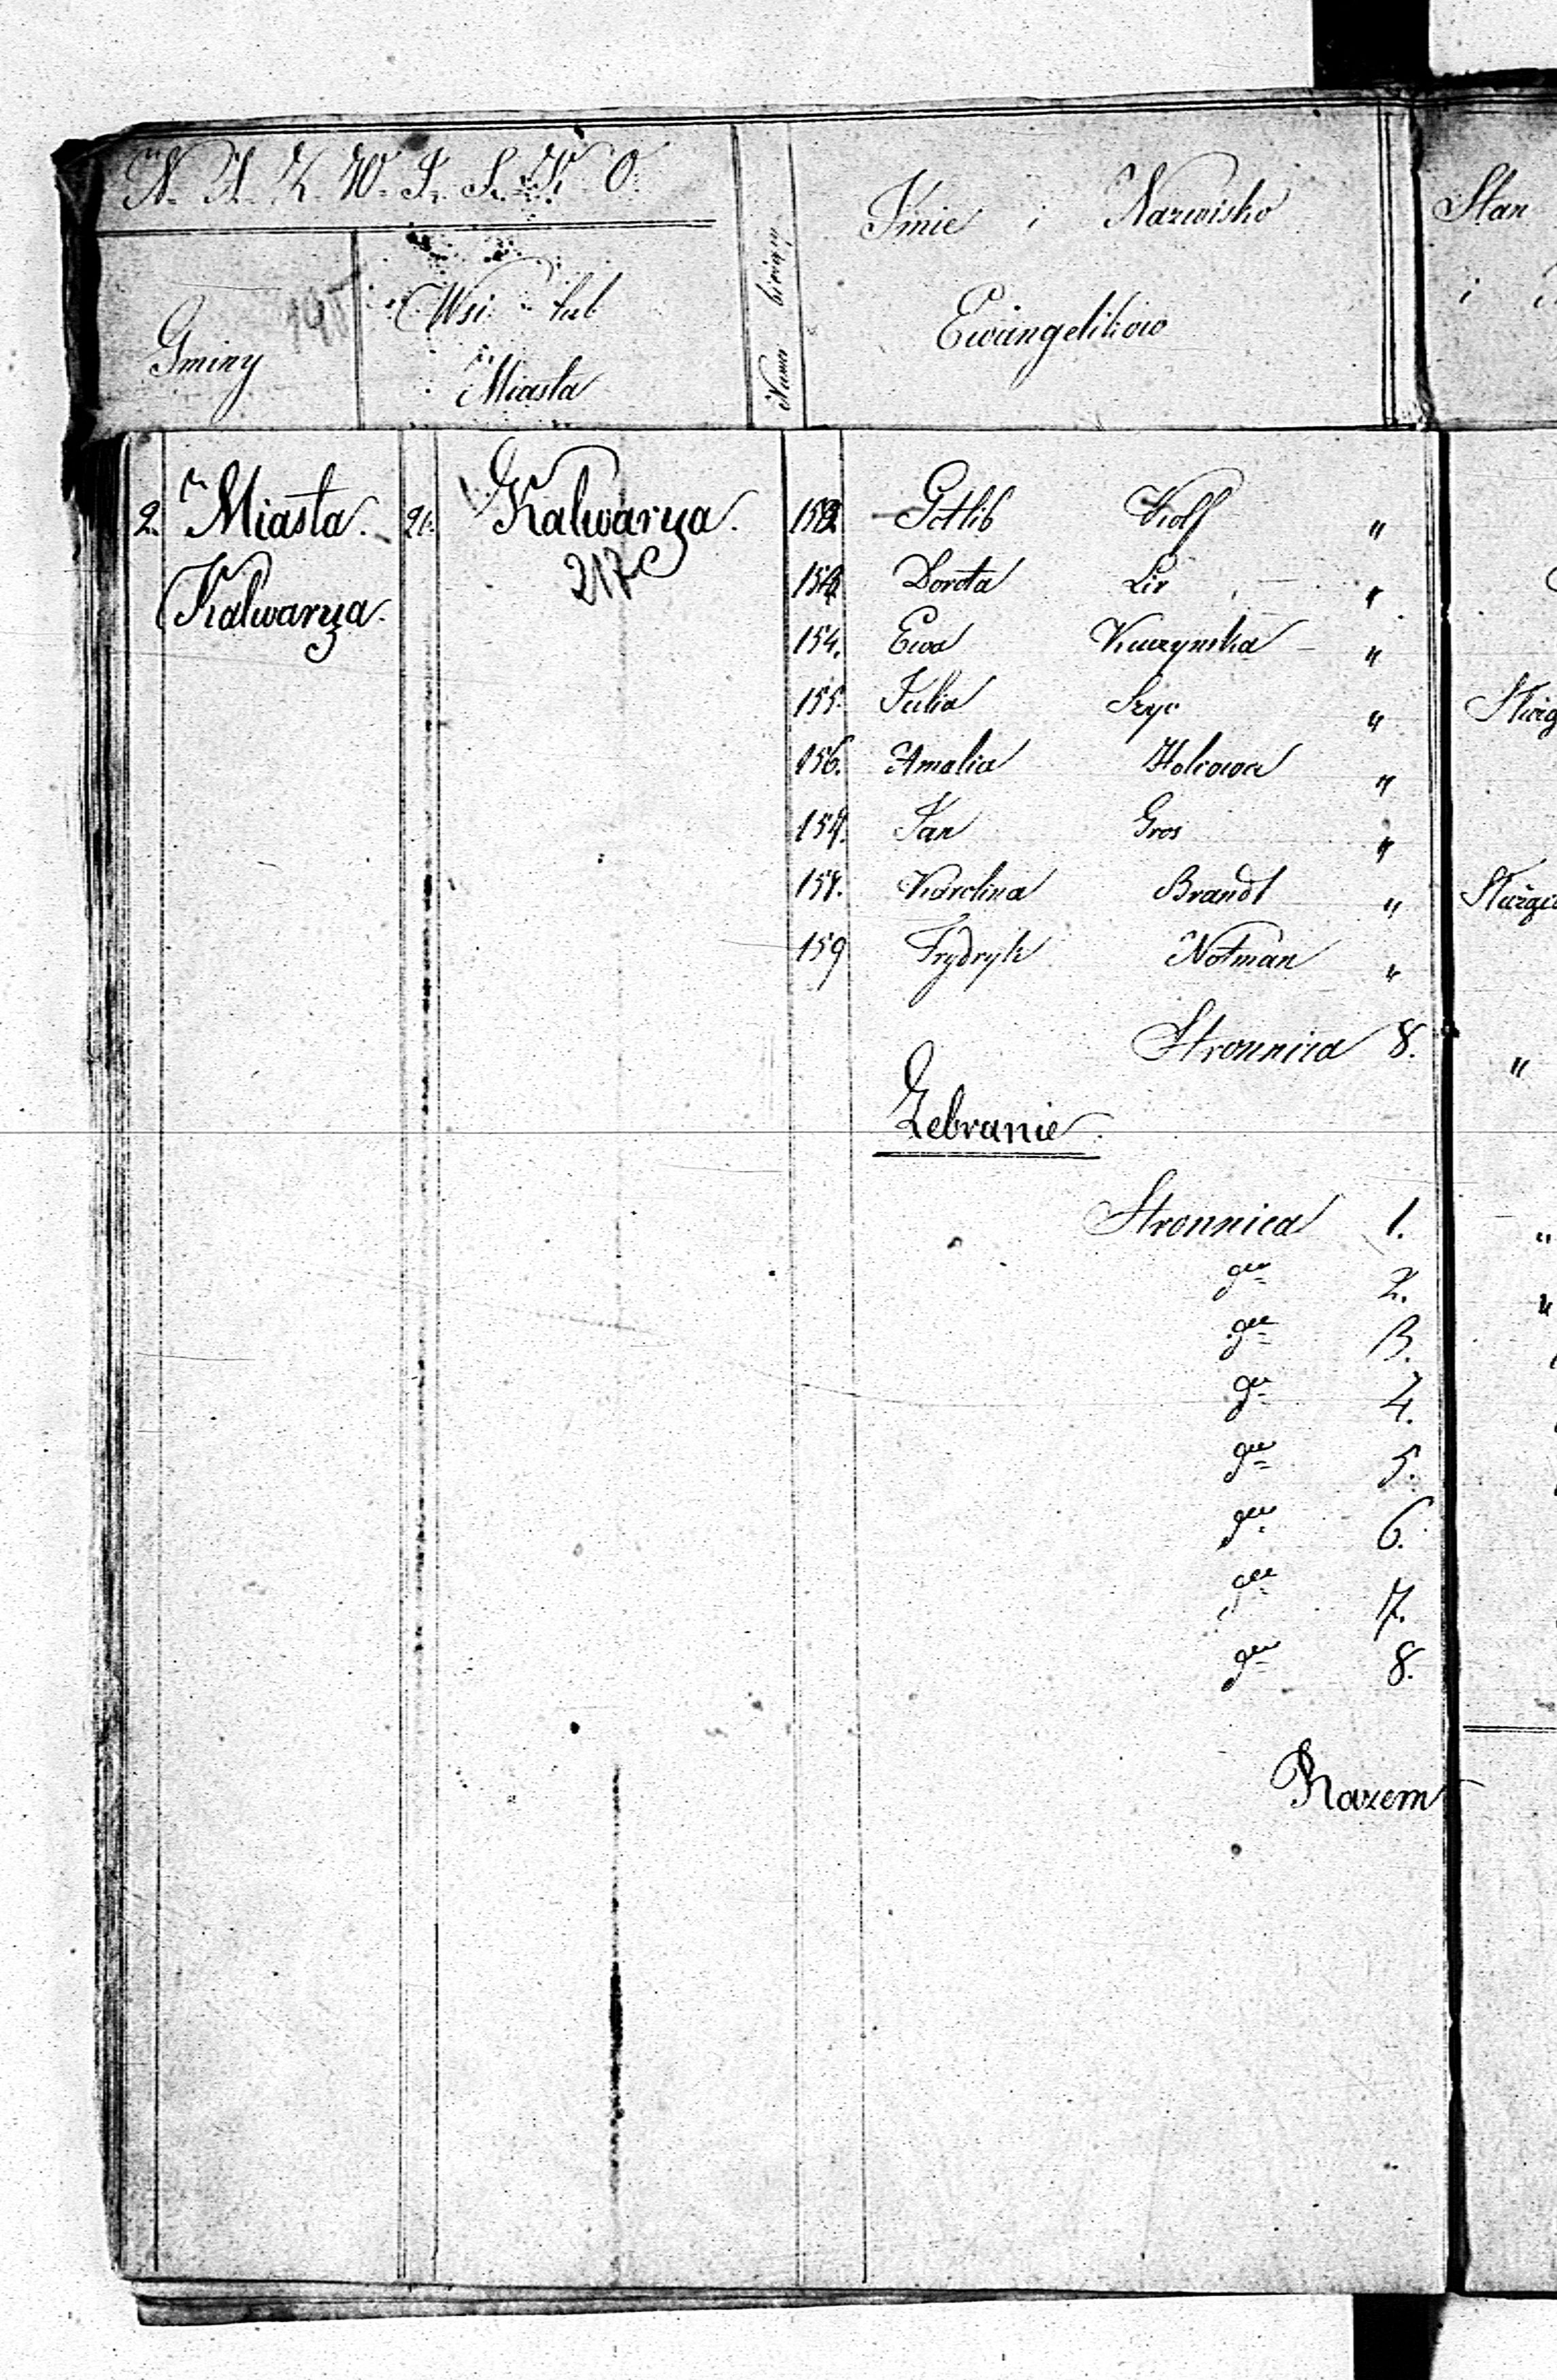 N. A. Z. W. I. S. K. O.
Gminy
Wsi lub
Miasta
Numer bieżący
Imie i Nazwisko
Ewangelikow
Stan
i
2. Miasta
Kalwarya.
21. Kalwarya.
217c
152 Gotlib Wolf "
153 Dorota Lir "
154. Ewa Kuczynska "
155. Julia Szyc "
156. Amalia Holcowa "
157. Jan Gros "
158. Karolina Brandt "
159 Frydryk Notman "
Stronnica 8. "
Zebranie
Stronnica 1. "
" 2. "
" 3.
" 4.
" 5.
" 6.
" 7.
" 8.
Razem